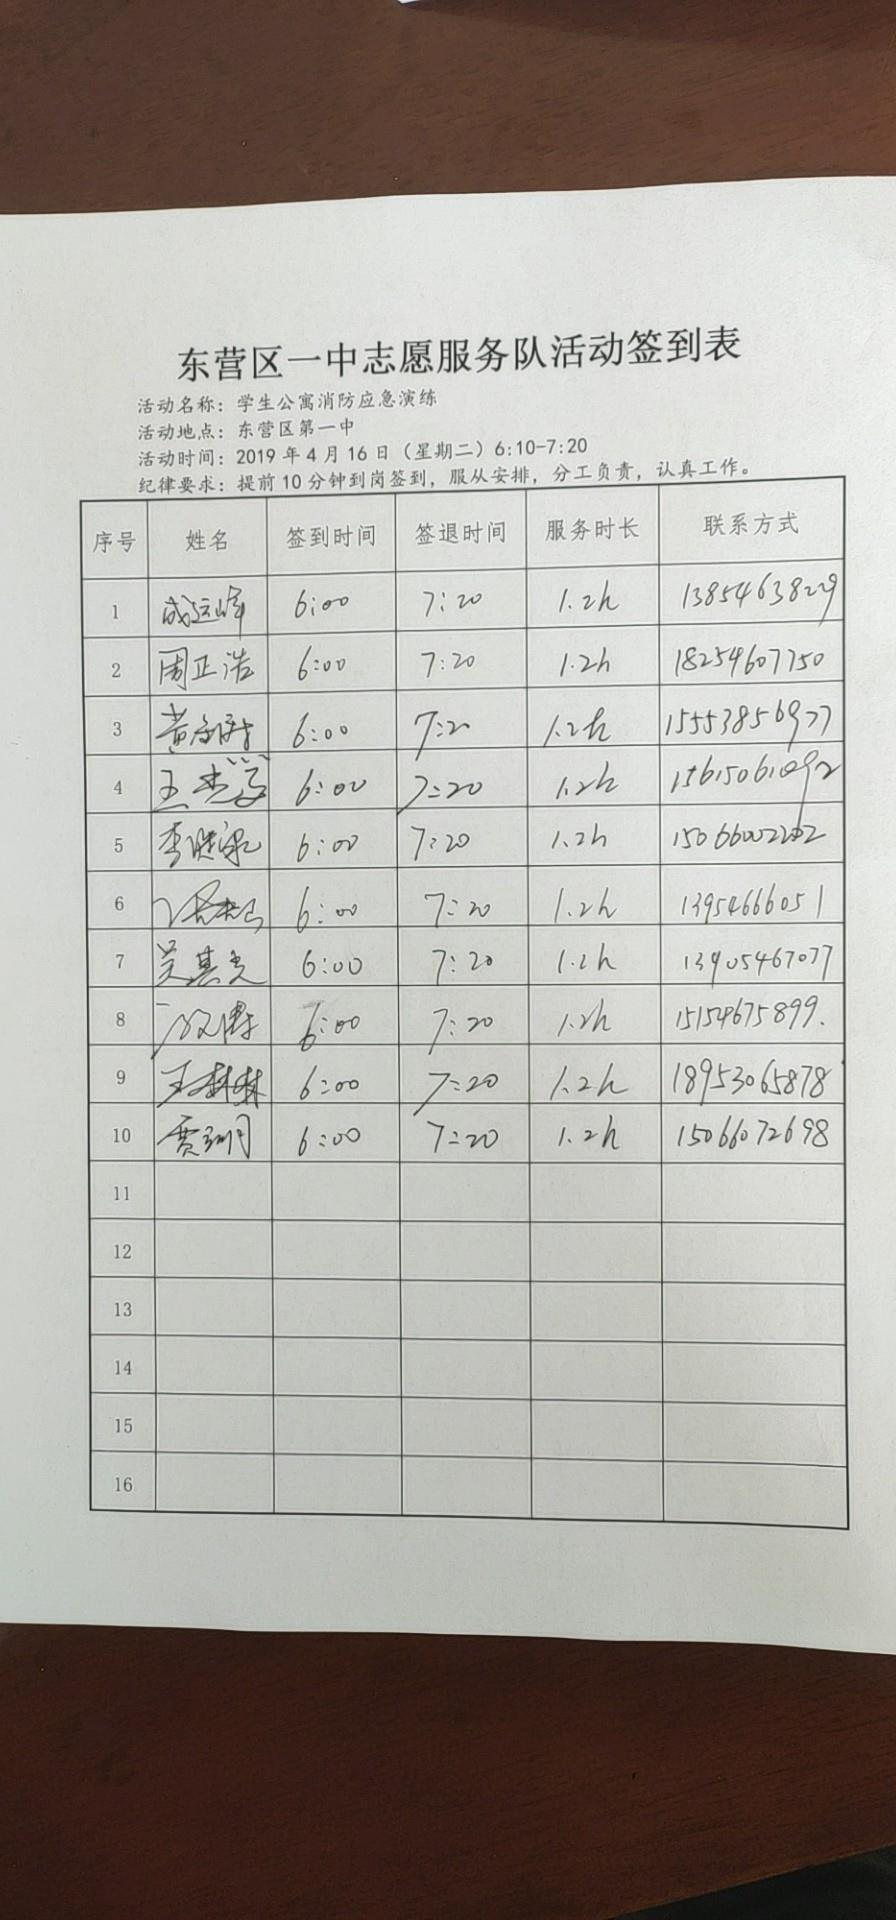 东营区一中志愿服务队活动签到表
活动名称：学生公寓消防应急演练
活动地点：东营区第一中
活动时间：2019年4月16日（星期二）6:10-7:20
纪律要求：提前10分钟到岗签到，服从安排，分工负责，认真工作。
序号 姓名 签到时间 签退时间 服务时长 联系方式
1 成运峰 6:00 7:20 1.2h 13854638229
2 周正浩 6:00 7:20 1.2h 18254607750
3 6:00 7:20 1.2h 15553856977
4 6:00 7:20 1.2h
5 6:00 7:20 1.2h 15066002202
6 6:00 7:20 1.2h 13954666051
7 吴其光 6:00 7:20 1.2h 13905467077
8 6:00 7:20 1.2h 15154675899.
9 王林林 6:00 7:20 1.2h 18953065878
10 6:00 7:20 1.2h 15066072698
11
12
13
14
15
16